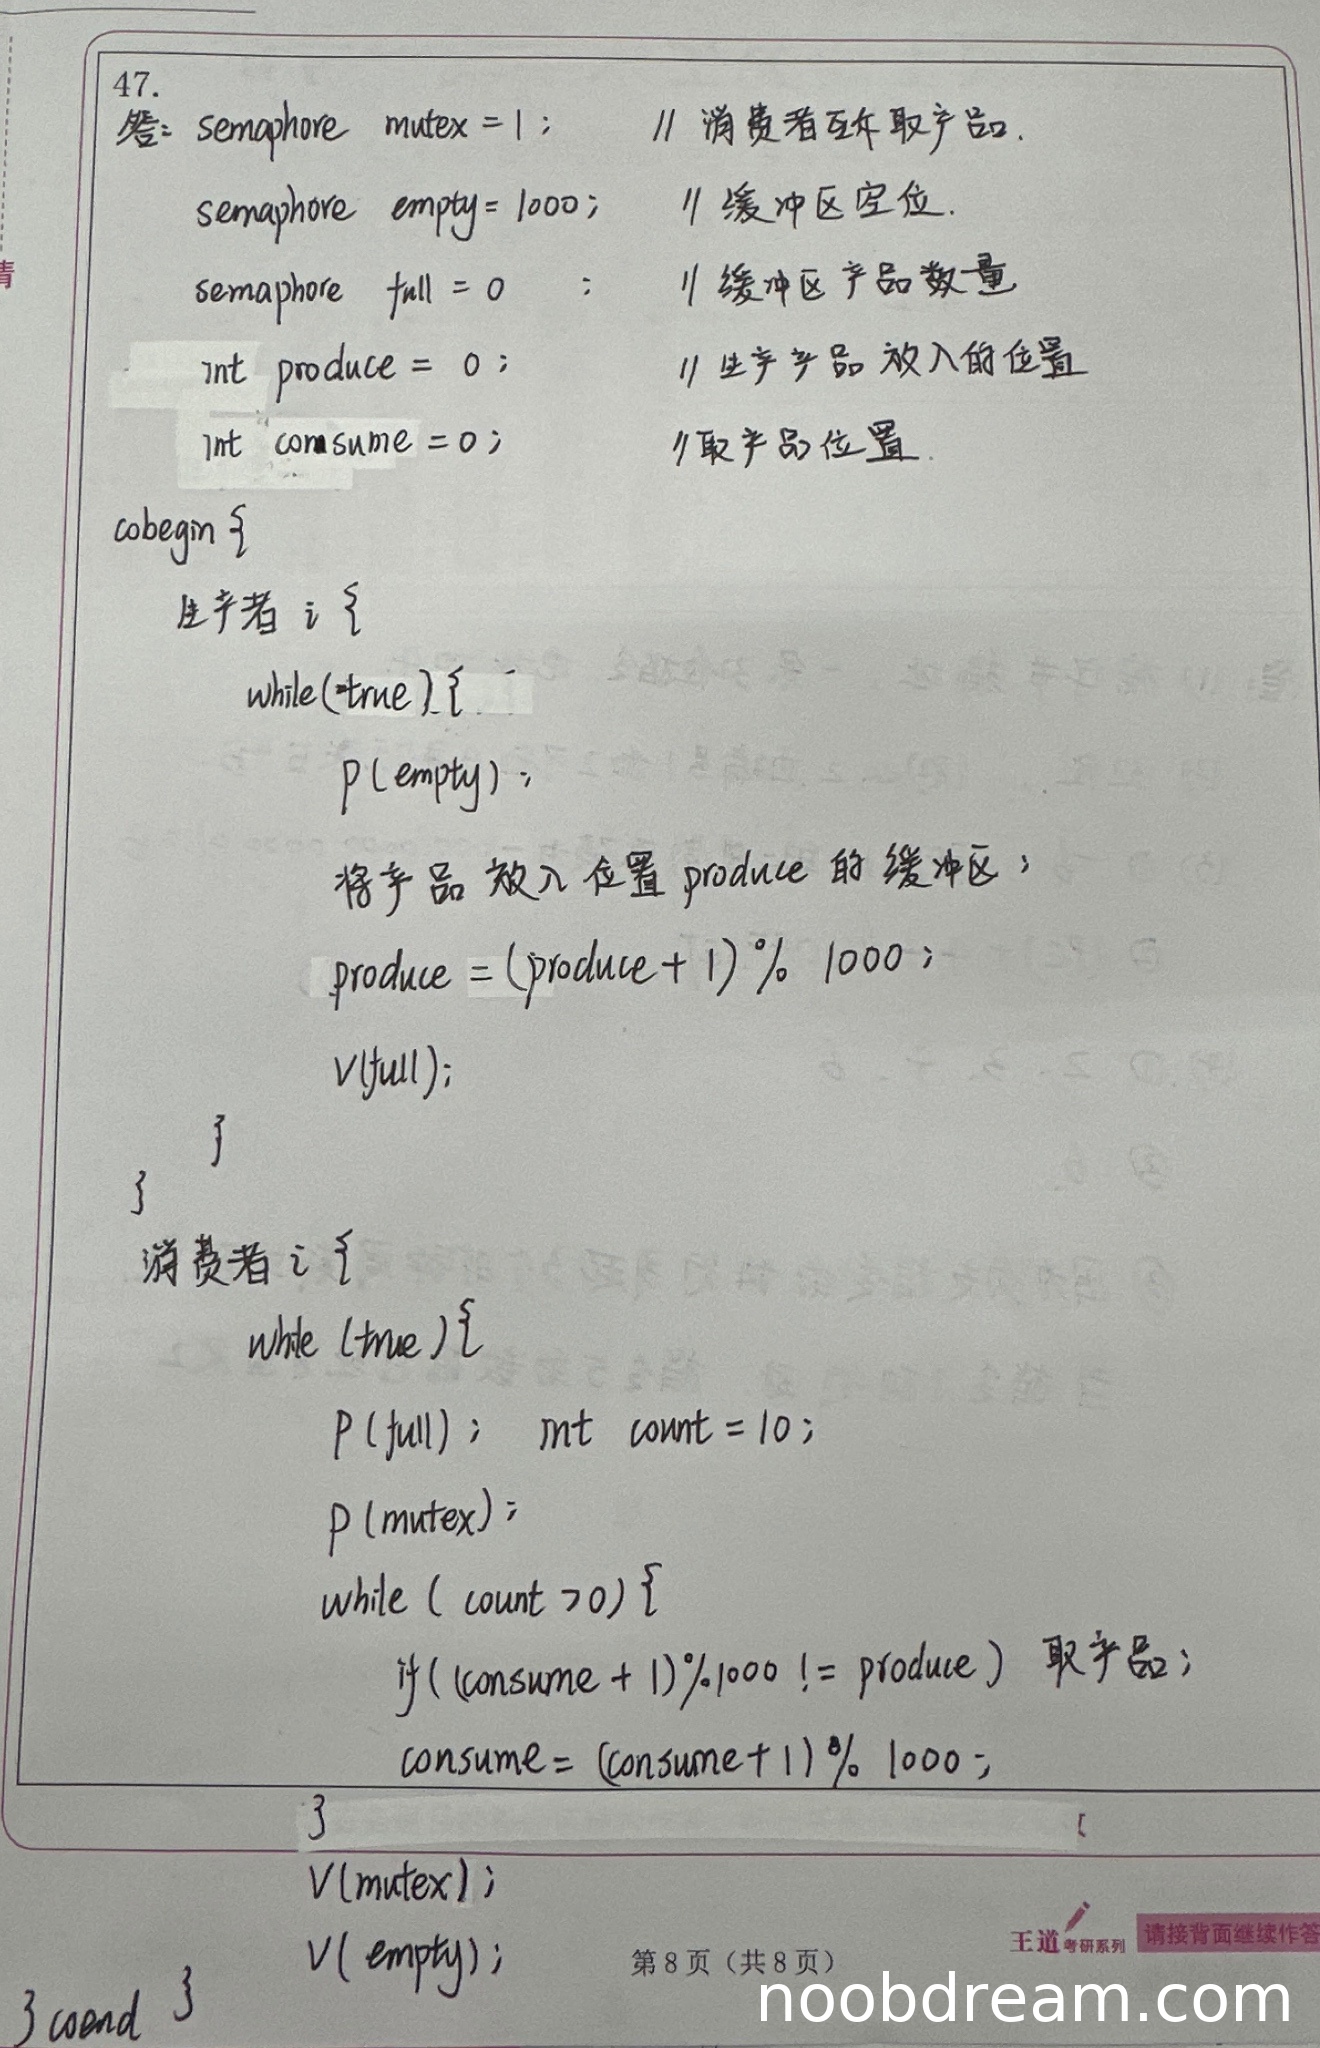 47.
答: semaphore mutex = 1; // 消费者互斥取产品.
semaphore empty = 1000; // 缓冲区空位.
semaphore full = 0 ; // 缓冲区产品数量
int produce = 0; // 生产产品放入的位置
int consume = 0; // 取产品位置.
cobegin {
生产者 i {
while(true) {
P(empty);
将产品放入位置 produce 的缓冲区;
produce = (produce + 1) % 1000;
V(full);
}
}
消费者 i {
while (true) {
P(full); int count = 10;
P(mutex);
while ( count > 0) {
if ((consume + 1) % 1000 != produce) 取产品;
consume = (consume + 1) % 1000;
}
V(mutex);
V(empty);
}
} coend
王道考研系列 请接背面继续作答
第 8 页（共 8 页）
noobdream.com